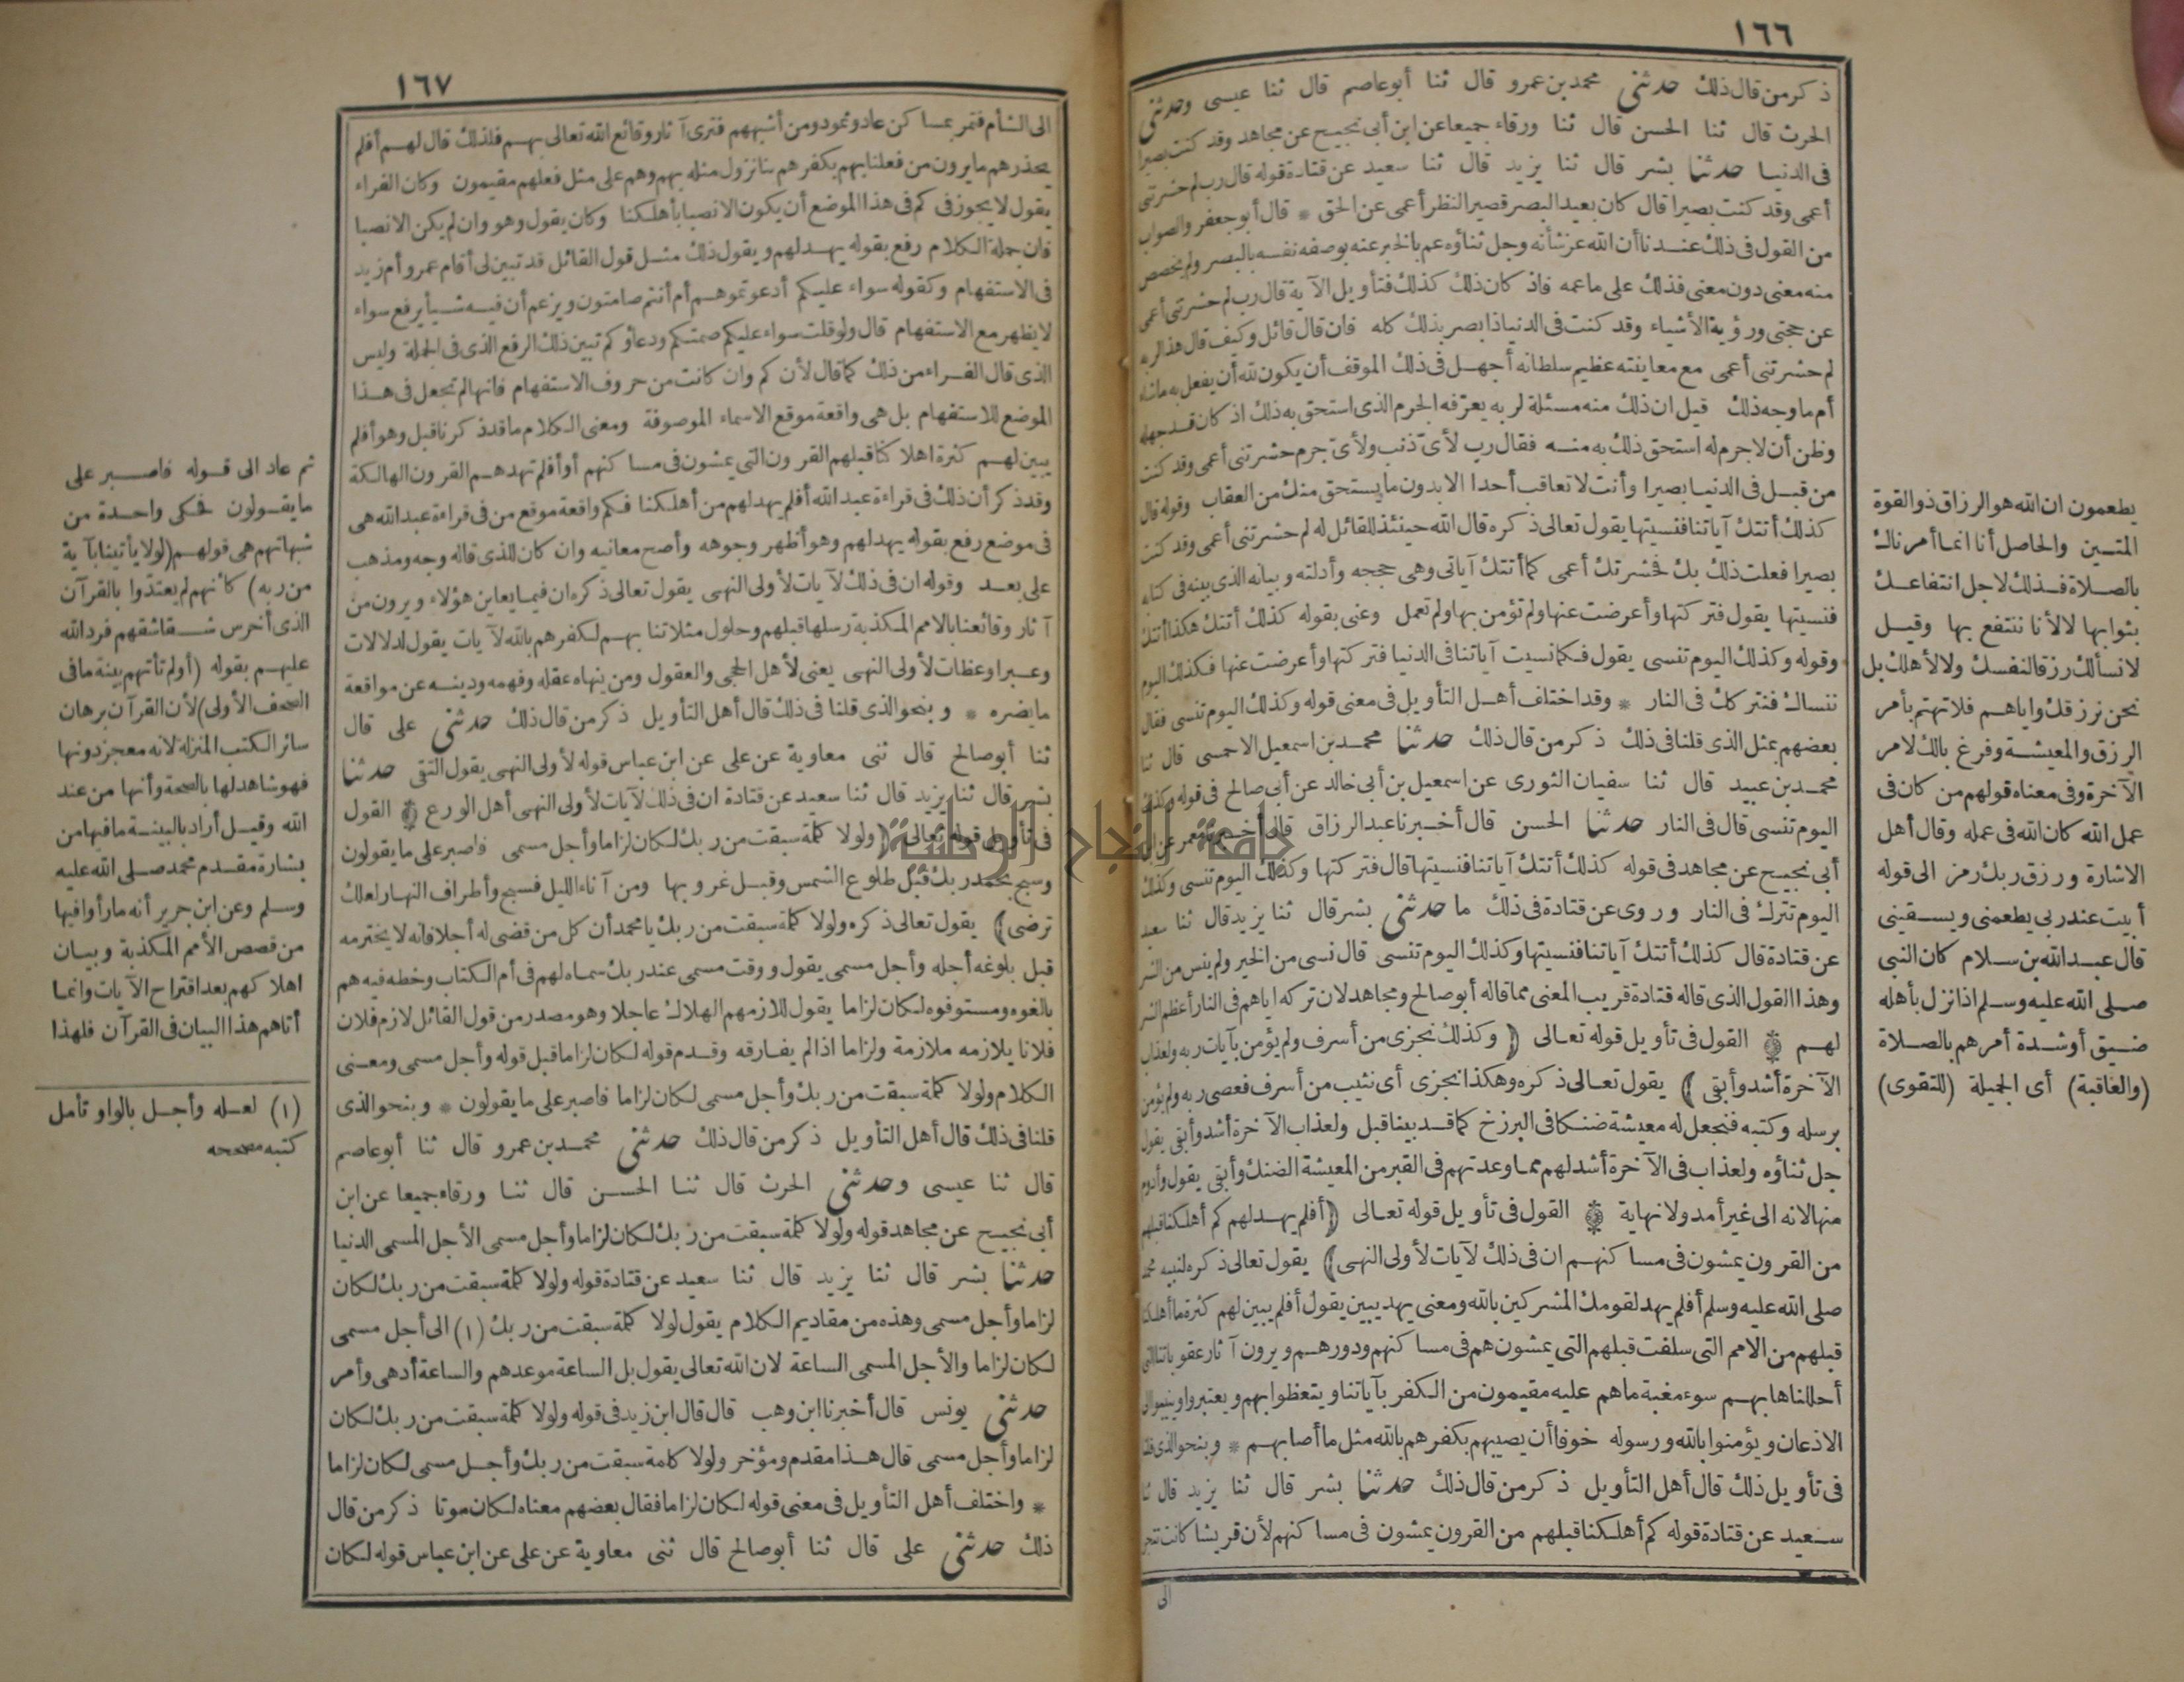 ١٦٦
ذكر من قال ذلك حدثني محمد بن عمرو قال ثنا أبو عاصم قال ثنا عيسى وحدثني
الحرث قال ثنا الحسن قال ثنا ورقاء جميعا عن ابن أبي نجيح عن مجاهد وقد كنت بصيرا
في الدنيا حدثنا بشر قال ثنا يزيد قال ثنا سعيد عن قتادة قوله قال رب لم حشرتني
أعمى وقد كنت بصيرا قال كان بعيد البصر قصير النظر أعمى عن الحق * قال أبو جعفر والصواب
من القول في ذلك عندنا أن الله عز شأنه وجل ثناؤه عم بالخبر عنه بوصفه نفسه بالبصر ولم يخصص
منه معنى دون معنى فذلك على ما عمه فاذ كان ذلك كذلك فتأويل الآية قال رب لم حشرتني أعمى
عن حجتي ورؤية الأشياء وقد كنت في الدنيا ذا بصر بذلك كله فان قال قائل وكيف قال هذا لربه
لم حشرتني أعمى مع معاينته عظيم سلطانه أجهل في ذلك الموقف أن يكون لله أن يفعل به ما شاء
أم ما وجه ذلك قيل ان ذلك منه مسئلة لربه يعرفه الجرم الذي استحق به ذلك اذ كان قد جهله
وظن أن لا جرم له استحق ذلك به منه فقال رب لأي ذنب ولأي جرم حشرتني أعمى وقد كنت
من قبل في الدنيا بصيرا وأنت لا تعاقب أحدا الا بدون ما يستحق منك من العقاب وقوله قال
كذلك أتتك آياتنا فنسيتها يقول تعالى ذكره قال الله حينئذ للقائل له لم حشرتني أعمى وقد كنت
بصيرا فعلت ذلك بك فحشرتك أعمى كما أتتك آياتي وهي حججه وأدلته وبيانه الذي بينه في كتابه
فنسيتها يقول فتركتها وأعرضت عنها ولم تؤمن بها ولم تعمل وعنى بقوله كذلك أتتك هكذا أتتك
وقوله وكذلك اليوم تنسى يقول فكما نسيت آياتنا في الدنيا فتركتها وأعرضت عنها فكذلك اليوم
ننساك فنتركك في النار * وقد اختلف أهل التأويل في معنى قوله وكذلك اليوم تنسى فقال
بعضهم بمثل الذي قلنا في ذلك ذكر من قال ذلك حدثنا محمد بن اسمعيل الاحمسي قال ثنا
محمد بن عبيد قال ثنا سفيان الثوري عن اسمعيل بن أبي خالد عن أبي صالح في قوله وكذلك
اليوم تنسى قال في النار حدثنا الحسن قال أخبرنا عبد الرزاق قال أخبرنا معمر عن ابن
أبي نجيح عن مجاهد في قوله كذلك أتتك آياتنا فنسيتها قال فتركتها وكذلك اليوم تنسى وكذلك
اليوم تترك في النار وروى عن قتادة في ذلك ما حدثني بشر قال ثنا يزيد قال ثنا سعيد
عن قتادة قال كذلك أتتك آياتنا فنسيتها وكذلك اليوم تنسى قال نسي من الخير ولم ينس من الشر
وهذا القول الذي قاله قتادة قريب المعنى مما قاله أبو صالح ومجاهد لان تركه اياهم في النار أعظم الشر
لهم ۞ القول في تأويل قوله تعالى ﴿ وكذلك نجزي من أسرف ولم يؤمن بآيات ربه ولعذاب
الآخرة أشد وأبقى ﴾ يقول تعالى ذكره وهكذا نجزي أي نثيب من أسرف فعصى ربه ولم يؤمن
برسله وكتبه فنجعل له معيشة ضنكا في البرزخ كما قد بينا قبل ولعذاب الآخرة أشد وأبقى يقول
جل ثناؤه ولعذاب في الآخرة أشد لهم مما وعدتهم في القبر من المعيشة الضنك وأبقى يقول وأدوم
منها لانه الى غير أمد ولا نهاية ۞ القول في تأويل قوله تعالى ﴿ أفلم يهد لهم كم أهلكنا قبلهم
من القرون يمشون في مساكنهم ان في ذلك لآيات لأولي النهى ﴾ يقول تعالى ذكره لنبيه محمد
صلى الله عليه وسلم أفلم يهد لقومك المشركين بالله ومعنى يهد يبين يقول أفلم يبين لهم كثرة ما أهلكنا
قبلهم من الامم التي سلفت قبلهم التي يمشون هم في مساكنهم ودورهم ويرون آثار عقوباتنا التي
أحللناها بهم سوء مغبة ما هم عليه مقيمون من الكفر بآياتنا ويتعظوا بهم ويعتبروا وينيبوا الى
الاذعان ويؤمنوا بالله ورسوله خوفا أن يصيبهم بكفرهم بالله مثل ما أصابهم * وبنحو الذي قلنا
في تأويل ذلك قال أهل التأويل ذكر من قال ذلك حدثنا بشر قال ثنا يزيد قال ثنا
سعيد عن قتادة قوله كم أهلكنا قبلهم من القرون يمشون في مساكنهم لأن قريشا كانت تتجر
الى
يطعمون ان الله هو الرزاق ذو القوة
المتين والحاصل أنا انما أمرناك
بالصلاة فذلك لاجل انتفاعك
بثوابها لا لأنا ننتفع بها وقيل
لا نسألك رزقا لنفسك ولا لأهلك بل
نحن نرزقك واياهم فلا تهتم بأمر
الرزق والمعيشة وفرغ بالك لامر
الآخرة وفي معناه قولهم من كان في
عمل الله كان الله في عمله وقال أهل
الاشارة ورزق ربك رمز الى قوله
أبيت عند ربي يطعمني ويسقيني
قال عبد الله بن سلام كان النبي
صلى الله عليه وسلم اذا نزل بأهله
ضيق أو شدة أمرهم بالصلاة
(والعاقبة) أي الجميلة (للتقوى)
١٦٧
الى الشأم فتمر بمساكن عاد وثمود ومن أشبههم فترى آثار وقائع الله تعالى بهم فلذلك قال لهم أفلم
يحذرهم ما يرون من فعلنا بهم بكفرهم بنا نزول مثله بهم وهم على مثل فعلهم مقيمون وكان الفراء
يقول لا يجوز في كم في هذا الموضع أن يكون الا نصبا بأهلكنا وكان يقول وهو وان لم يكن الا نصبا
فان جملة الكلام رفع بقوله يهد لهم ويقول ذلك مثل قول القائل قد تبين لي أقام عمرو أم زيد
في الاستفهام وكقوله سواء عليكم أدعوتموهم أم أنتم صامتون ويزعم أن فيه شيأ يرفع سواء
لا يظهر مع الاستفهام قال ولو قلت سواء عليكم صمتكم ودعاؤكم تبين ذلك الرفع الذي في الجملة وليس
الذي قال الفراء من ذلك كما قال لأن كم وان كانت من حروف الاستفهام فانها لم تجعل في هذا
الموضع للاستفهام بل هي واقعة موقع الاسماء الموصوفة ومعنى الكلام ما قد ذكرنا قبل وهو أفلم
يبين لهم كثرة اهلاكنا قبلهم القرون التي يمشون في مساكنهم أو أفلم تهدهم القرون الهالكة
وقد ذكر أن ذلك في قراءة عبد الله أفلم يهد لهم من أهلكنا فكم واقعة موقع من في قراءة عبد الله هي
في موضع رفع بقوله يهد لهم وهو أظهر وجوهه وأصح معانيه وان كان للذي قاله وجه ومذهب
على بعد وقوله ان في ذلك لآيات لأولي النهى يقول تعالى ذكره ان فيما يعاين هؤلاء ويرون من
آثار وقائعنا بالامم المكذبة رسلها قبلهم وحلول مثلاتنا بهم لكفرهم بالله لآيات يقول لدلالات
وعبرا وعظات لأولي النهى يعني لأهل الحجى والعقول ومن ينهاه عقله وفهمه ودينه عن مواقعة
ما يضره * وبنحو الذي قلنا في ذلك قال أهل التأويل ذكر من قال ذلك حدثني علي قال
ثنا أبو صالح قال ثني معاوية عن علي عن ابن عباس قوله لأولي النهى يقول التقى حدثنا
بشر قال ثنا يزيد قال ثنا سعيد عن قتادة ان في ذلك لآيات لأولي النهى أهل الورع ۞ القول
في تأويل قوله تعالى ﴿ ولولا كلمة سبقت من ربك لكان لزاما وأجل مسمى فاصبر على ما يقولون
وسبح بحمد ربك قبل طلوع الشمس وقبل غروبها ومن آناء الليل فسبح وأطراف النهار لعلك
ترضى ﴾ يقول تعالى ذكره ولولا كلمة سبقت من ربك يا محمد أن كل من قضى له أجلا فانه لا يخترمه
قبل بلوغه أجله وأجل مسمى يقول ووقت مسمى عند ربك سماه لهم في أم الكتاب وخطه فيه هم
بالغوه ومستوفوه لكان لزاما يقول للازمهم الهلاك عاجلا وهو مصدر من قول القائل لازم فلان
فلانا يلازمه ملازمة ولزاما اذا لم يفارقه وقدم قوله لكان لزاما قبل قوله وأجل مسمى ومعنى
الكلام ولولا كلمة سبقت من ربك وأجل مسمى لكان لزاما فاصبر على ما يقولون * وبنحو الذي
قلنا في ذلك قال أهل التأويل ذكر من قال ذلك حدثني محمد بن عمرو قال ثنا أبو عاصم
قال ثنا عيسى وحدثني الحرث قال ثنا الحسن قال ثنا ورقاء جميعا عن ابن
أبي نجيح عن مجاهد قوله ولولا كلمة سبقت من ربك لكان لزاما وأجل مسمى الأجل المسمى الدنيا
حدثنا بشر قال ثنا يزيد قال ثنا سعيد عن قتادة قوله ولولا كلمة سبقت من ربك لكان
لزاما وأجل مسمى وهذه من مقاديم الكلام يقول لولا كلمة سبقت من ربك (١) الى أجل مسمى
لكان لزاما والأجل المسمى الساعة لان الله تعالى يقول بل الساعة موعدهم والساعة أدهى وأمر
حدثني يونس قال أخبرنا ابن وهب قال قال ابن زيد في قوله ولولا كلمة سبقت من ربك لكان
لزاما وأجل مسمى قال هذا مقدم ومؤخر ولولا كلمة سبقت من ربك وأجل مسمى لكان لزاما
* واختلف أهل التأويل في معنى قوله لكان لزاما فقال بعضهم معناه لكان موتا ذكر من قال
ذلك حدثني علي قال ثنا أبو صالح قال ثني معاوية عن علي عن ابن عباس قوله لكان
ثم عاد الى قوله فاصبر على
ما يقولون فحكى واحدة من
شبهاتهم هي قولهم (لولا يأتينا بآية
من ربه) كأنهم لم يعتدوا بالقرآن
الذي أخرس شقاشقهم فرد الله
عليهم بقوله (أولم تأتهم بينة ما في
الصحف الأولى) لأن القرآن برهان
سائر الكتب المنزلة لانه معجز دونها
فهو شاهد لها بالصحة وأنها من عند
الله وقيل أراد بالبينة ما فيها من
بشارة مقدم محمد صلى الله عليه
وسلم وعن ابن جرير أنه ما رأوا فيها
من قصص الأمم المكذبة وبيان
اهلاكهم بعد اقتراح الآيات وانما
أتاهم هذا البيان في القرآن فلهذا
(١) لعله وأجل بالواو تأمل
كتبه مصححه
جامعة النجاح الوطنية